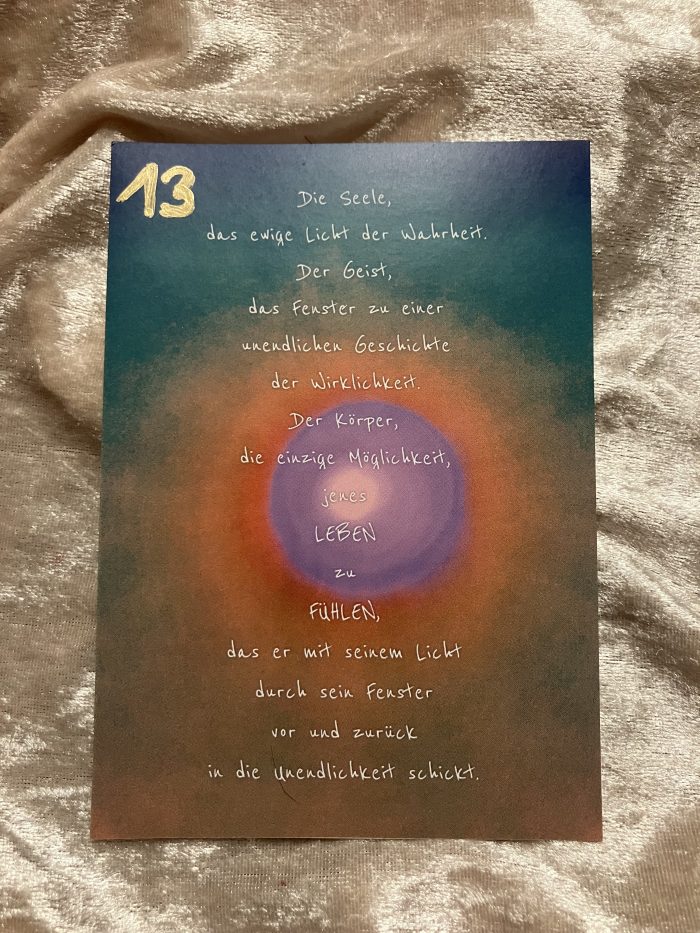 13
Die Seele,
das ewige Licht der Wahrheit.
Der Geist,
das Fenster zu einer
unendlichen Geschichte
der Wirklichkeit.
Der Körper,
die einzige Möglichkeit,
jenes
LEBEN
zu
FÜHLEN,
das er mit seinem Licht
durch sein Fenster
vor und zurück
in die Unendlichkeit schickt.